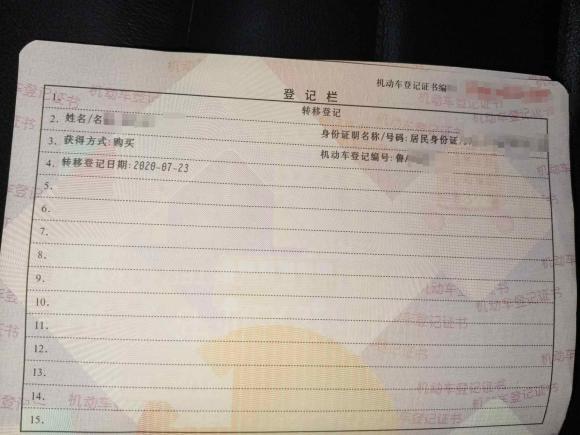 机动车登记证书编
登记栏
1. 转移登记
2. 姓名/名 身份证明名称/号码:居民身份证/
3. 获得方式:购买 机动车登记编号:鲁
4. 转移登记日期:2020-07-23
5.
6.
7.
8.
9.
10.
11.
12.
13.
14.
15.